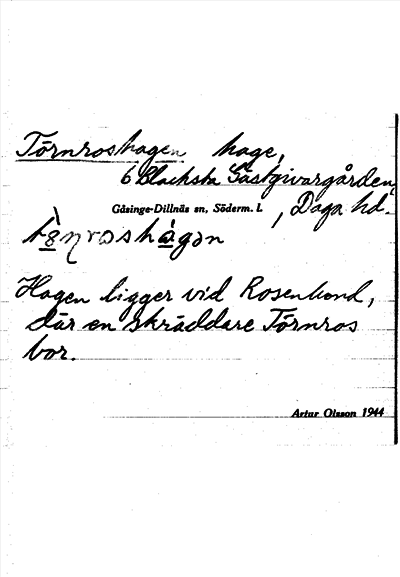 Törnroshagen hage,
6 Blacksta Gästgivargården,
Gåsinge-Dillnäs sn, Söderm. l., Daga hd.
Hagen ligger vid Rosenlund,
där en skräddare Törnros
bor.
Artur Olsson 1944